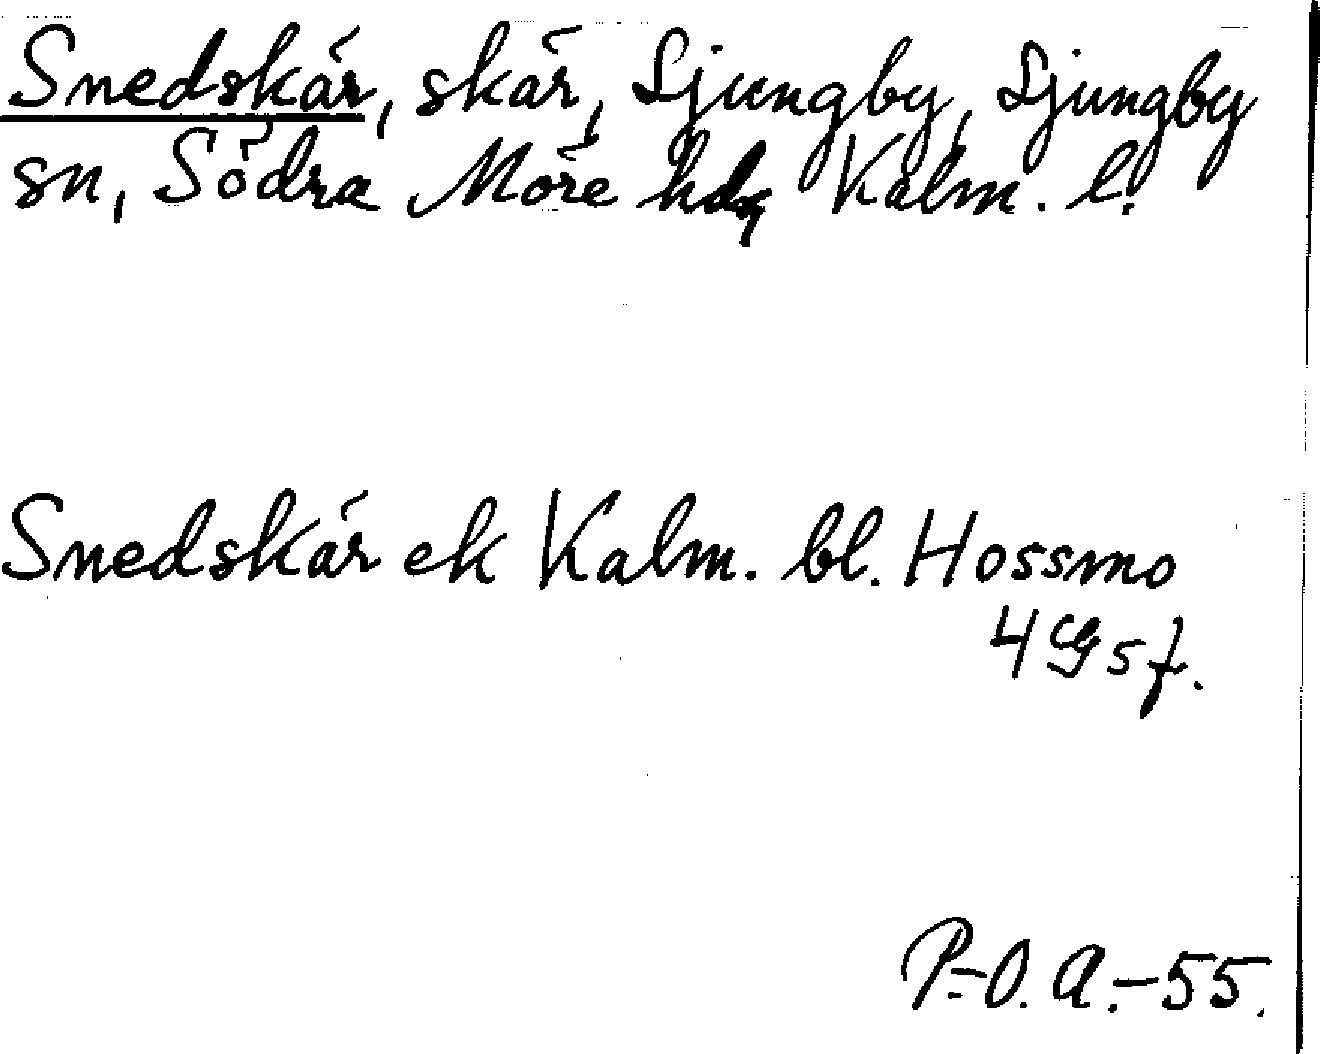 Snedskär, skär, Ljungby, Ljungby
sn, Södra Möre hd, Kalm. l.
Snedskär ek Kalm. bl. Hossmo
4 G 5 f.
P.-O. A.-55.